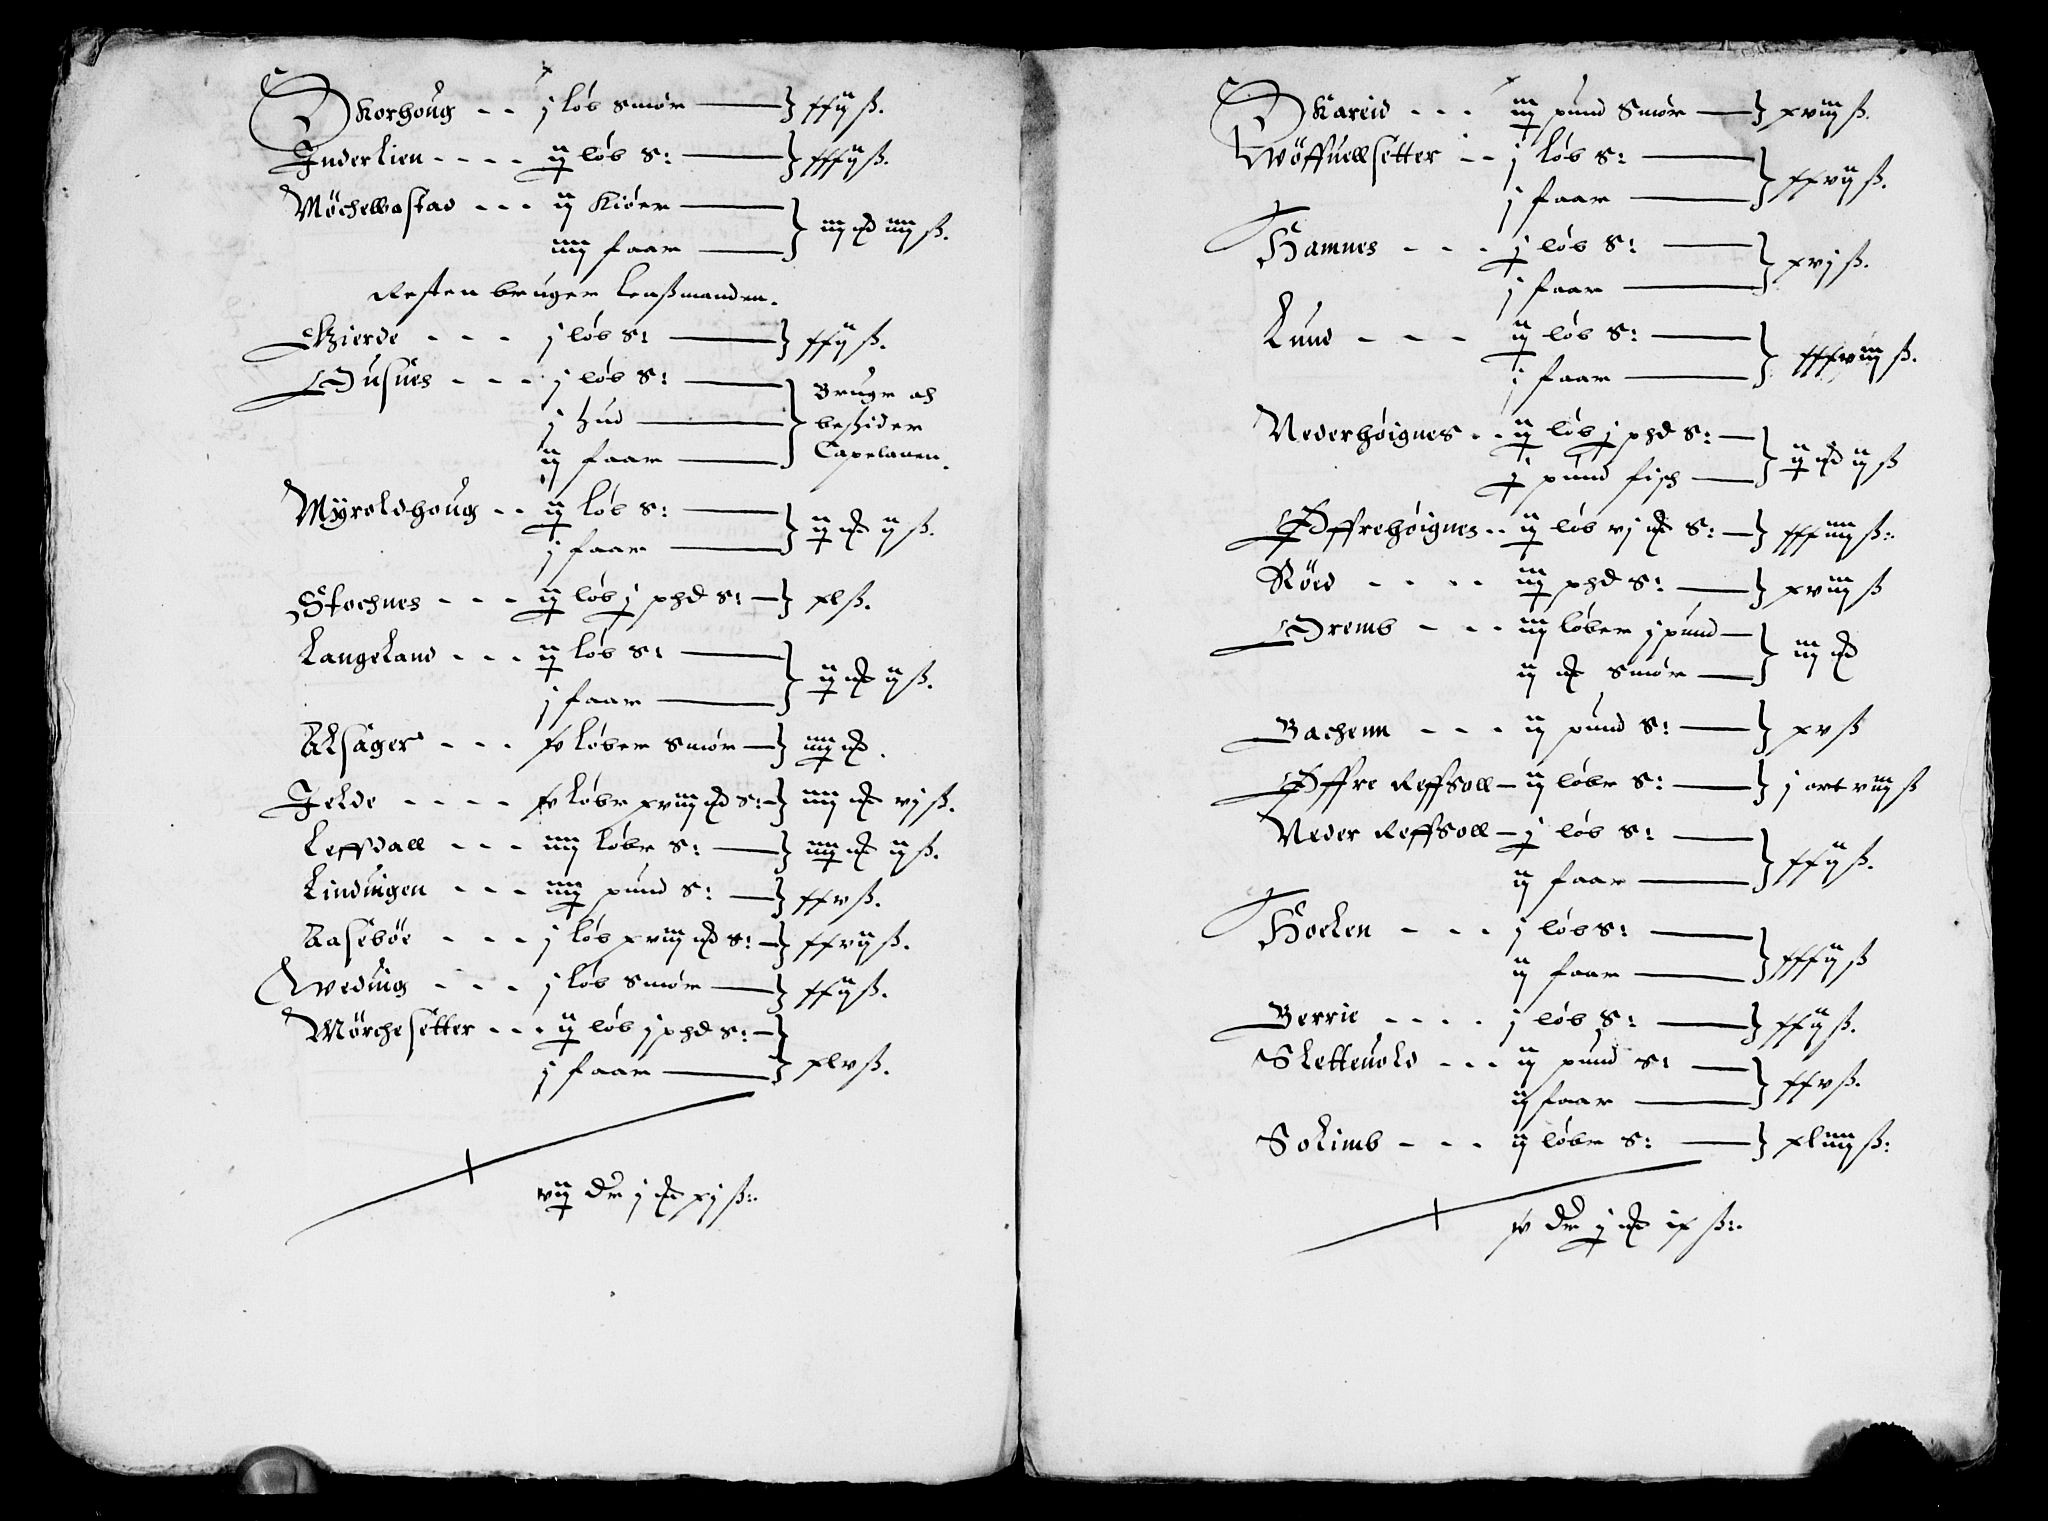 Skorhoug - - j løb smør — } xxij ß.
Inderlien - - - - ij løb S: — } xxxij ß.
Möchelbostad - - - ij kiöer —
iiij faar — } iij mk iiij ß.
Resten bruger lenßmanden.
Gierde - - - j løb S: — } xxij ß.
Husnes - - - j løb S: — } Bruger och
j hud — besider
ij faar — Capelanen.
Myroldhoug - - ij løb S: — } ij mk ij ß.
j faar —
Stochnes - - - ij løb j phd S: — } xl ß.
Langeland - - - ij løb S: — } ij mk ij ß.
j faar —
Alsäger - - - iv løber smør — } iiij mk.
Jelde - - - - iv løbr xviij mk S: — } iiij mk vj ß.
Leffdall - - - iiij løbr S: — } iiij mk ij ß.
Lindvigen - - - iiij pund S: — } xxv ß.
Aaseböe - - - j løb xviij mk S: — } xxvij ß.
Qveduig - - - j løb smør — } xxij ß.
Mörchesetter - - - ij løb j phd S: — } xlv ß.
j faar —
vij dr j mk xj ß:
Skareid - - - iij pund Smør — } xviij ß.
Tvöffuellsetter - - j løb S: — } xxvij ß.
j faar —
Hamnes - - - j løb S: — } xvj ß.
j faar —
Lund - - - ij løb S: — } xxxviij ß.
j faar —
Nederhøignes - - ij løb j phd S: — } ij mk ij ß
j pund fisch —
Øffrehøignes - - ij løb vj mk S: — } xxxiiij ß:
Röed - - - - iij phd S: — } xviij ß
Dremb - - - iij løber j pund — } iij mk
ij mk smør —
Bachenn - - - ij pund S: — } xv ß
Øffre Reffsoll — ij løbr S: — } j ort viij ß
Neder Reffsoll — j løb S: — } xxij ß.
ij faar —
Hoelen - - - j løb S: — } xxxij ß
ij faar —
Berrie - - - - j løb S: — } xxij ß.
Slettevold - - - ij pund S: — } xxv ß.
ij faar —
Solimb - - - ij løbr S: — } xliiij ß:
iv dr j mk ix ß: